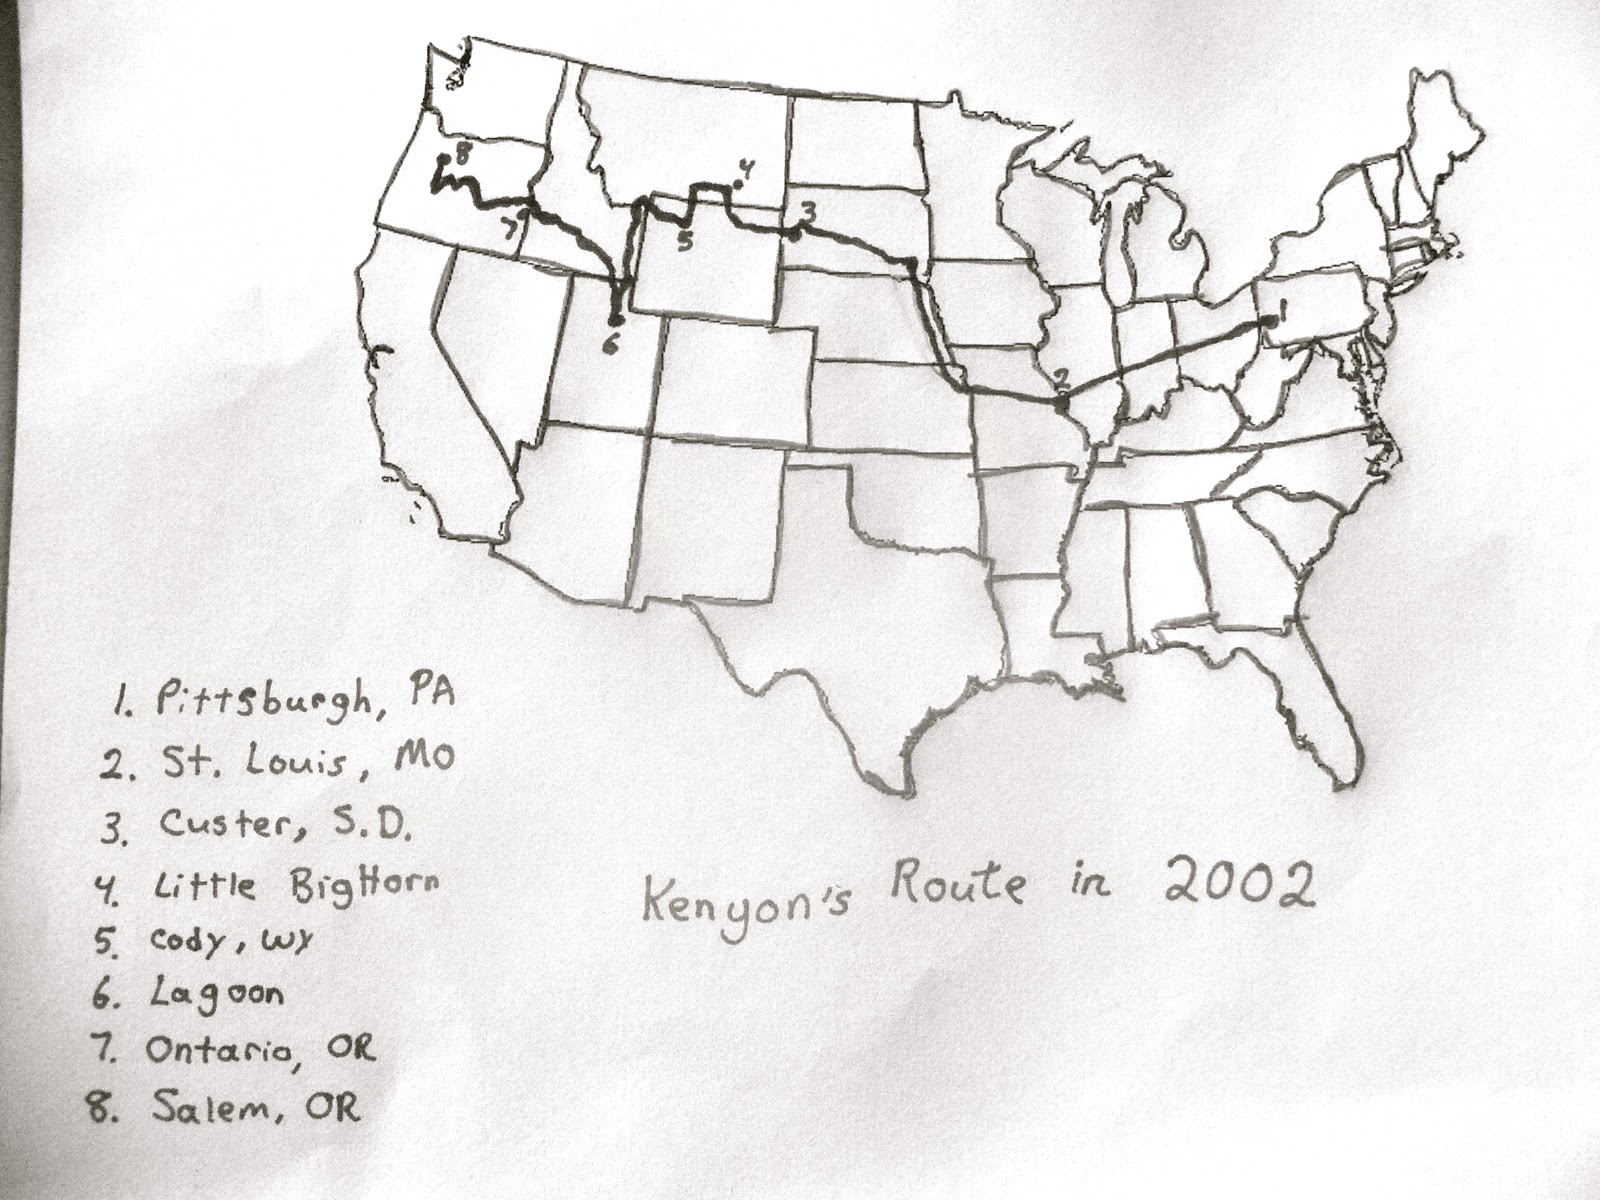 8
4
3
7
5
1
6
2
1. Pittsburgh, PA
2. St. Louis, MO
3. Custer, S.D.
4. Little BigHorn
5. Cody, WY
6. Lagoon
7. Ontario, OR
8. Salem, OR
Kenyon's Route in 2002